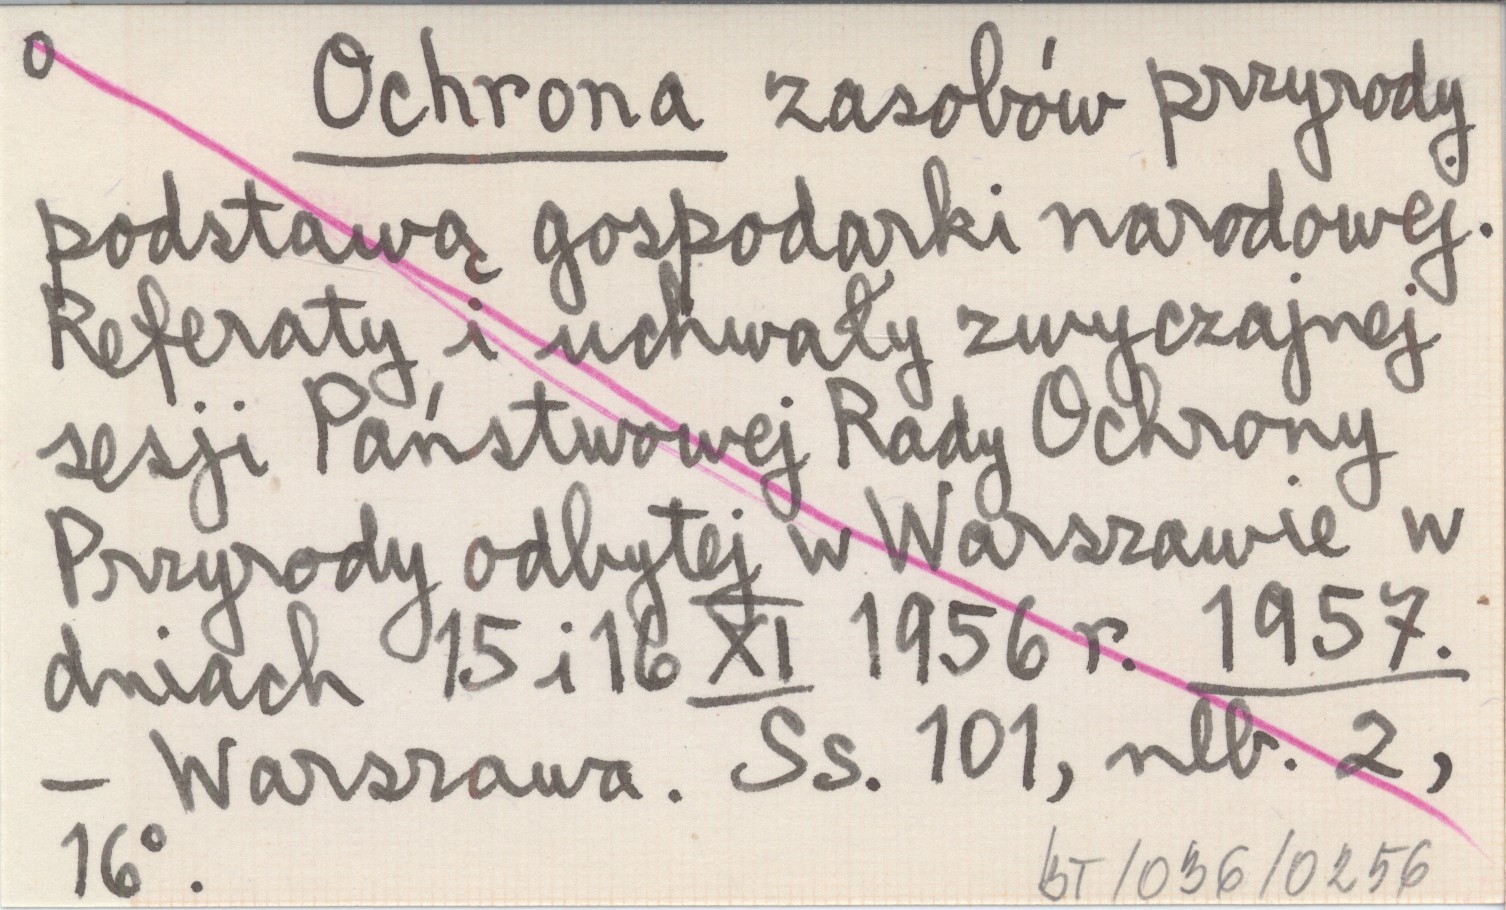 o Ochrona zasobów przyrody
podstawą gospodarki narodowej.
Referaty i uchwały zwyczajnej
sesji Państwowej Rady Ochrony
Przyrody odbytej w Warszawie w
dniach 15 i 16 XI 1956 r. 1957.
— Warszawa. Ss. 101, nlb. 2,
16°.
BT/036/0256